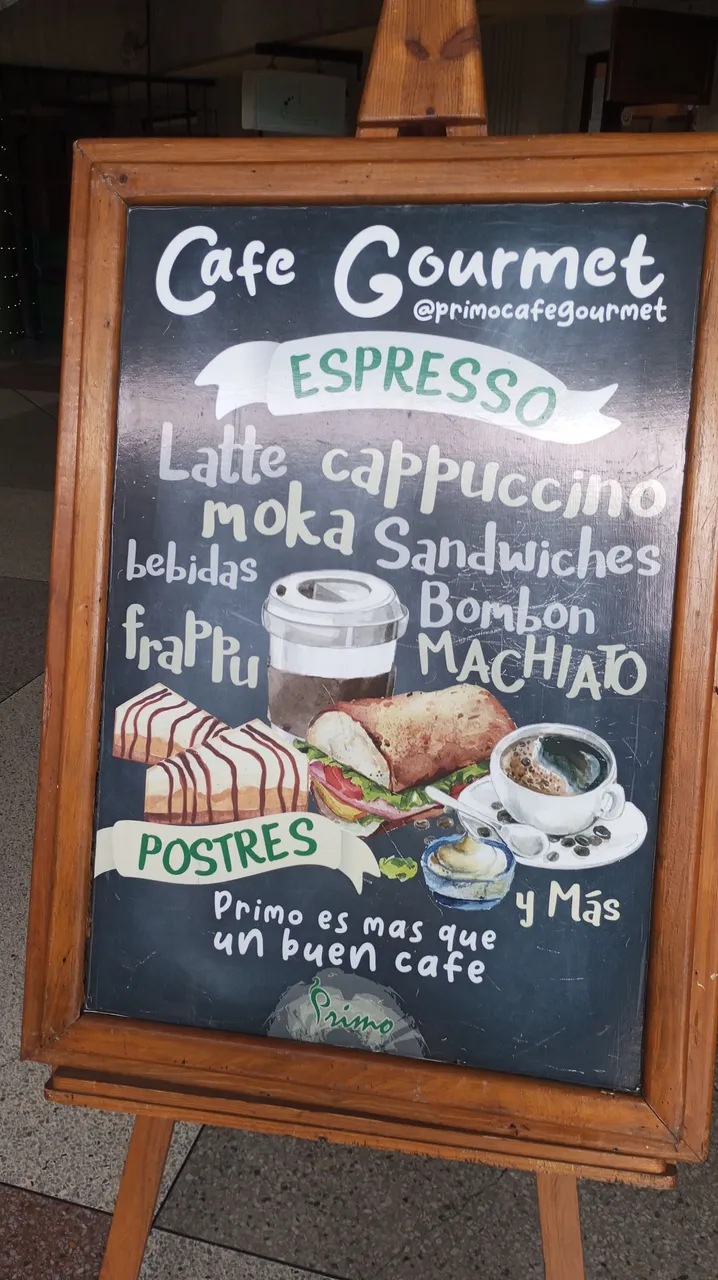 Cafe Gourmet
@primocafegourmet
ESPRESSO
Latte cappuccino
moka Sandwiches
bebidas Bombon
frappu MACHIATO
POSTRES
y Más
Primo es mas que
un buen cafe
Primo